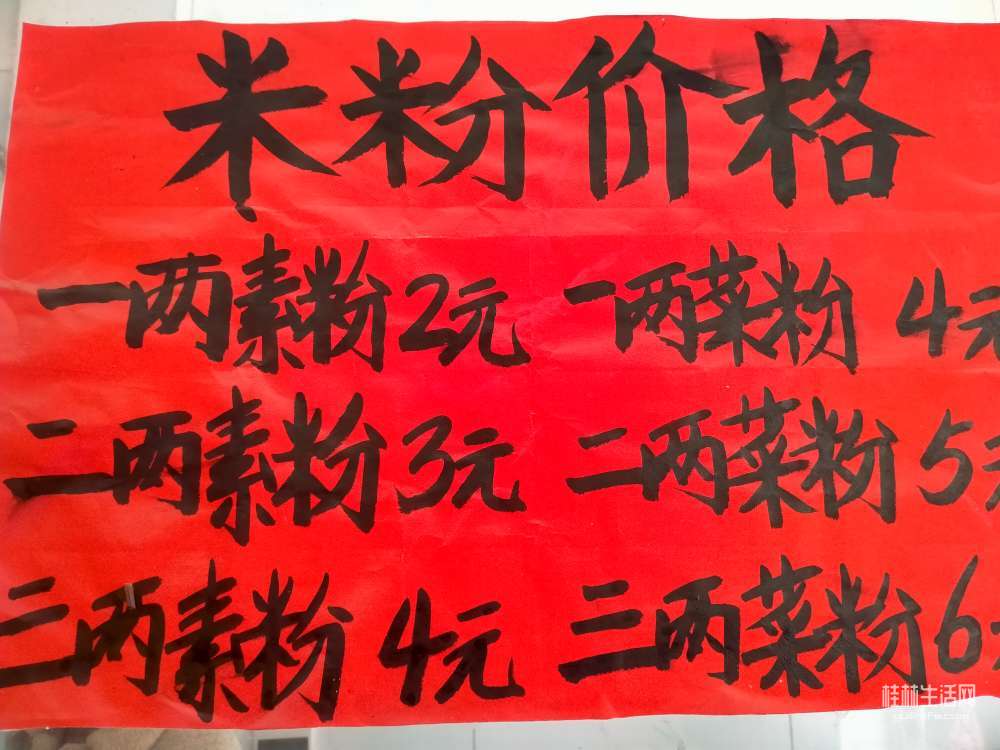 米粉价格
一两素粉2元 一两菜粉 4元
二两素粉3元 二两菜粉5元
三两素粉 4元 三两菜粉6元
桂林生活网